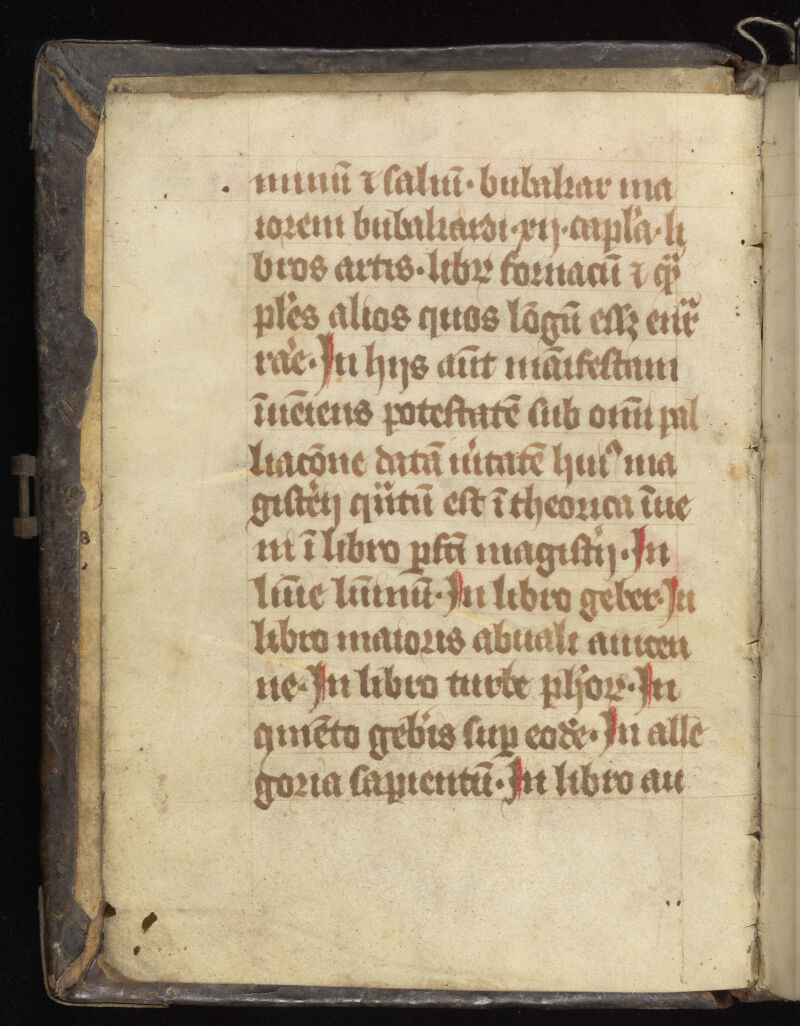 minū ⁊ saliū· bubakar ma
iorem bubakardi·xij·capl'a·li
bros artis·libꝝ fornacū ⁊
pl'es alios quos lōgū eēꝫ enr̄
rae· In hijs aūt māifestam
īuēiens potestatē sub om̄i pal
liacōne datā ūitatē hui⁹ ma
gist'ij est ī theorica īue
ni ī libro magist'ij· In
lūīe lūinū· In libro geber· In
libro maioris abuali auicen
ne· In libro turbe ph'oꝝ· In
geb'is suꝑ eode· In alle
goria sapientū· In libro au